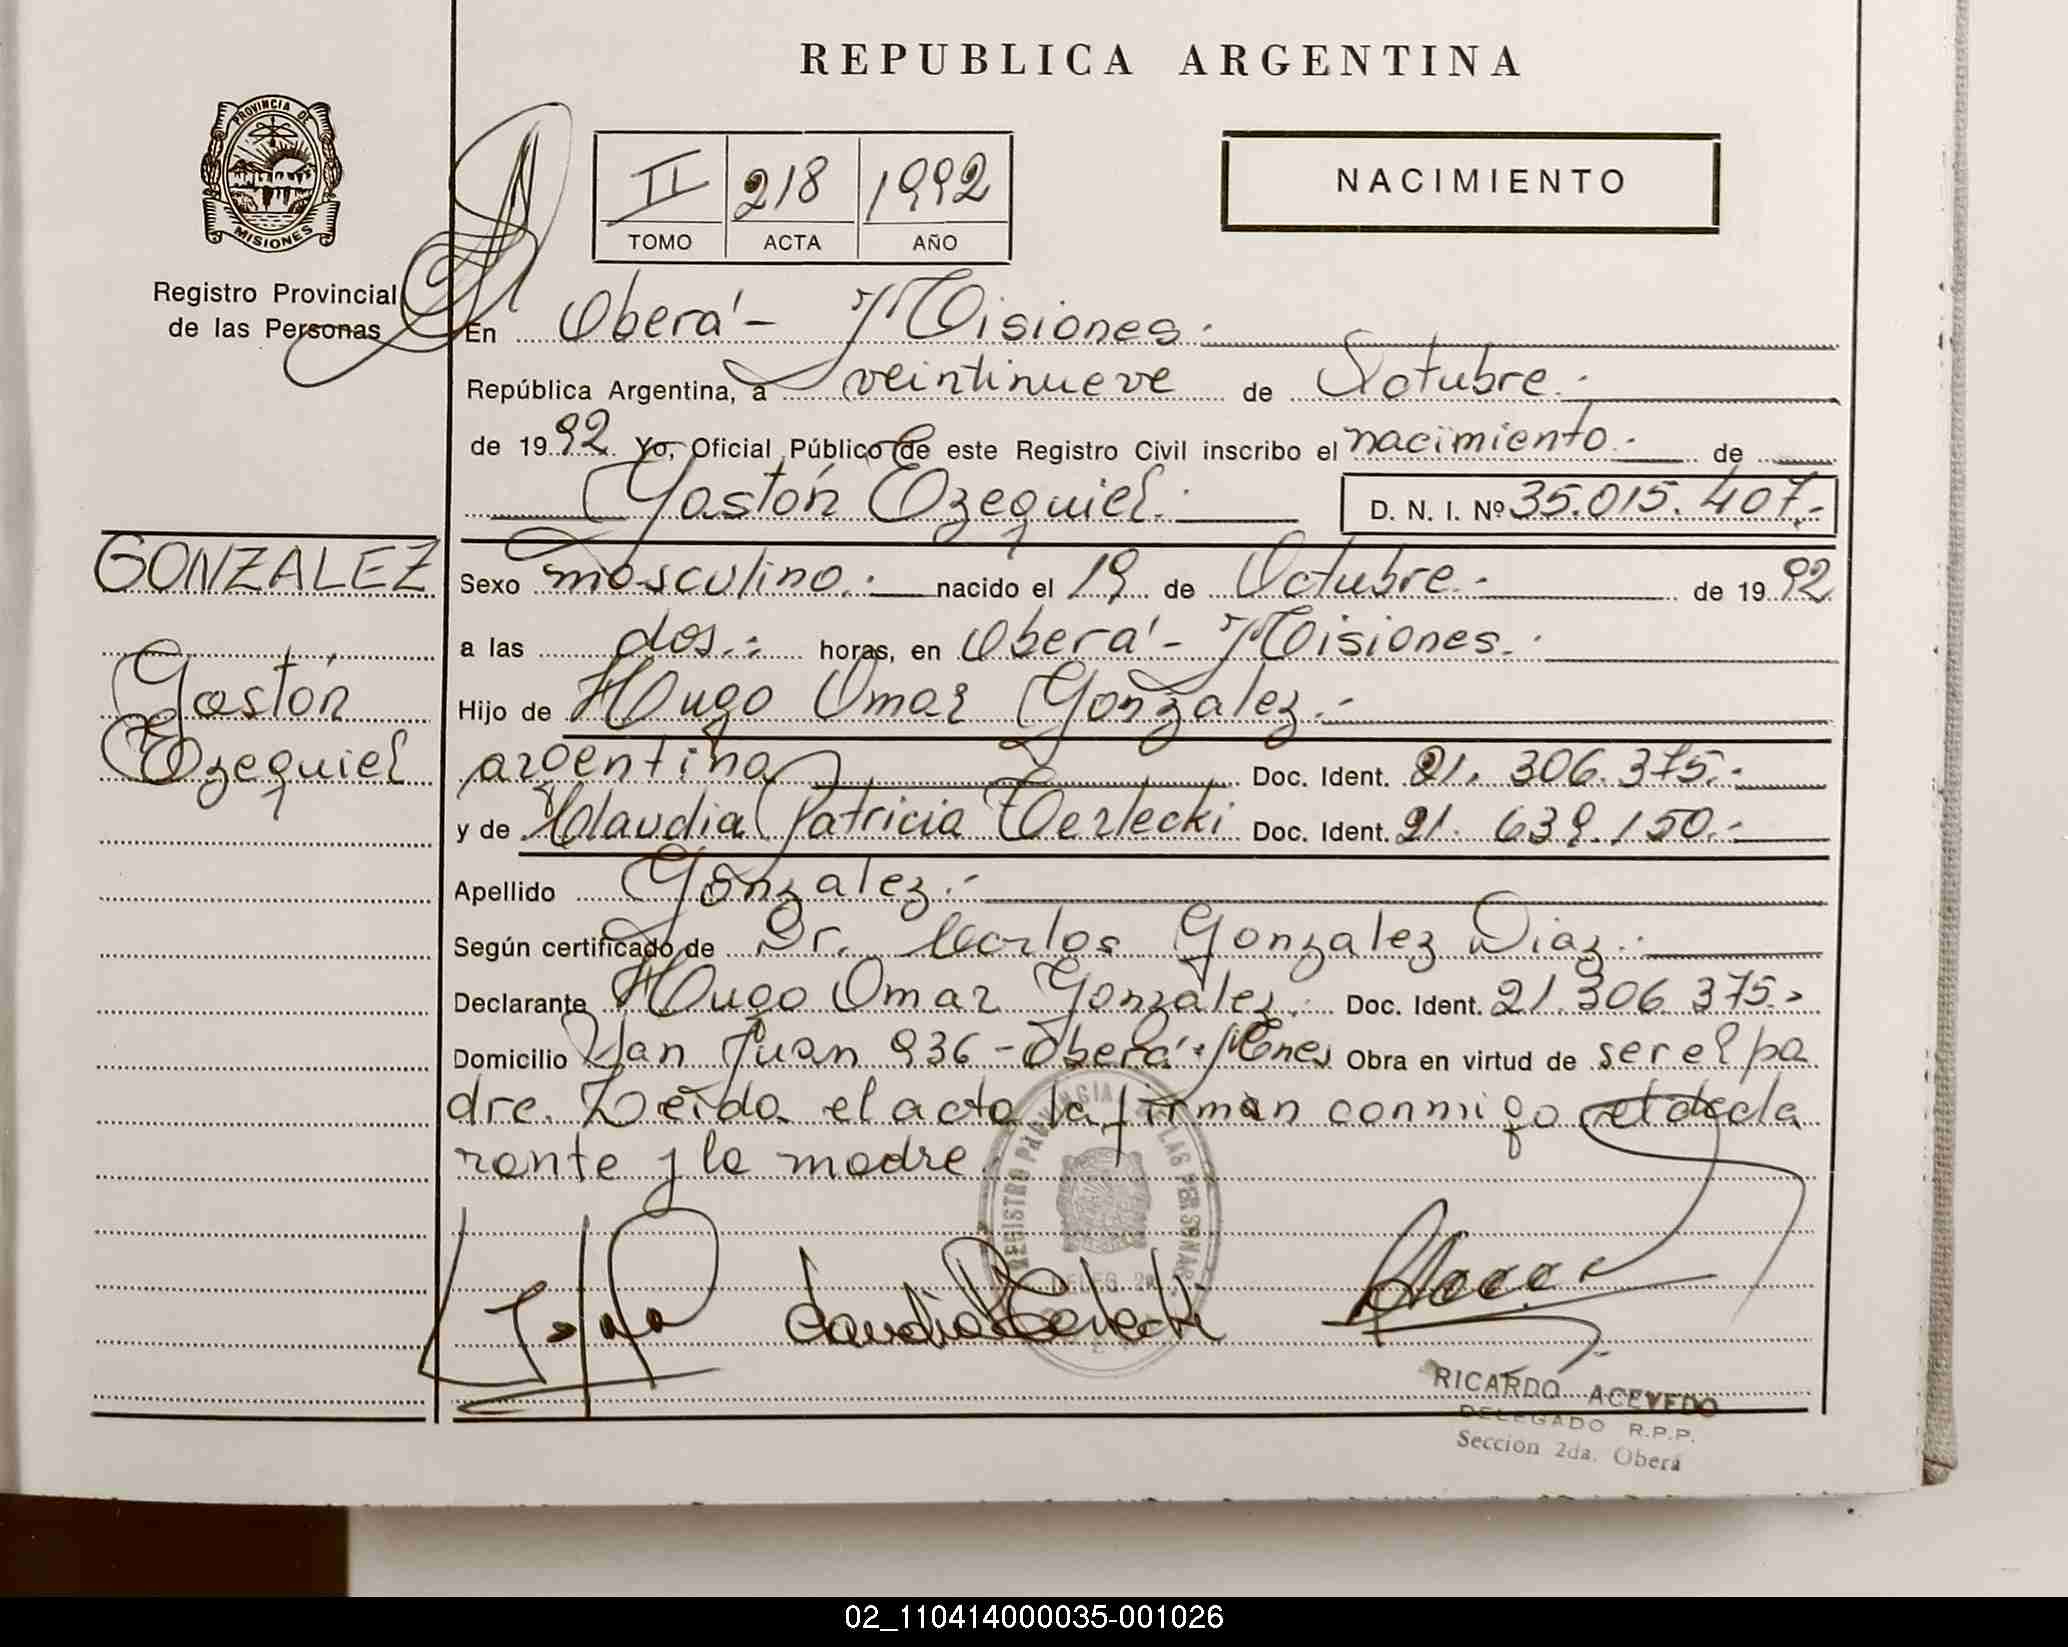 REPUBLICA ARGENTINA
PROVINCIA DE
MISIONES
Registro Provincial
de las Personas
II 218 1992
TOMO ACTA AÑO
NACIMIENTO
En Oberá - Misiones.-
República Argentina, a veintinueve de Octubre.-
de 1992 Yo, Oficial Público de este Registro Civil inscribo el nacimiento.- de
Gastón Ezequiel.- D. N. I. Nº 35.015.407.-
GONZALEZ
Gastón
Ezequiel
Sexo masculino.- nacido el 19 de Octubre.- de 1992
a las dos.- horas, en Oberá - Misiones.-
Hijo de Hugo Omar Gonzalez.-
argentina Doc. Ident. 21.306.375.-
y de Claudia Patricia Terlecki Doc. Ident. 21.639.150.-
Apellido Gonzalez.-
Según certificado de Dr. Carlos Gonzalez Diaz.-
Declarante Hugo Omar Gonzalez.- Doc. Ident. 21.306.375.-
Domicilio San Juan 936 - Oberá - Mnes Obra en virtud de ser el pa
dre. Leida el acta la firman conmigo el decla
rante y la madre.
REGISTRO PROVINCIAL DE LAS PERSONAS
DELEG. 2a
Claudia P Terlecki
RICARDO ACEVEDO
DELEGADO R.P.P.
Seccion 2da. Oberá
02_110414000035-001026